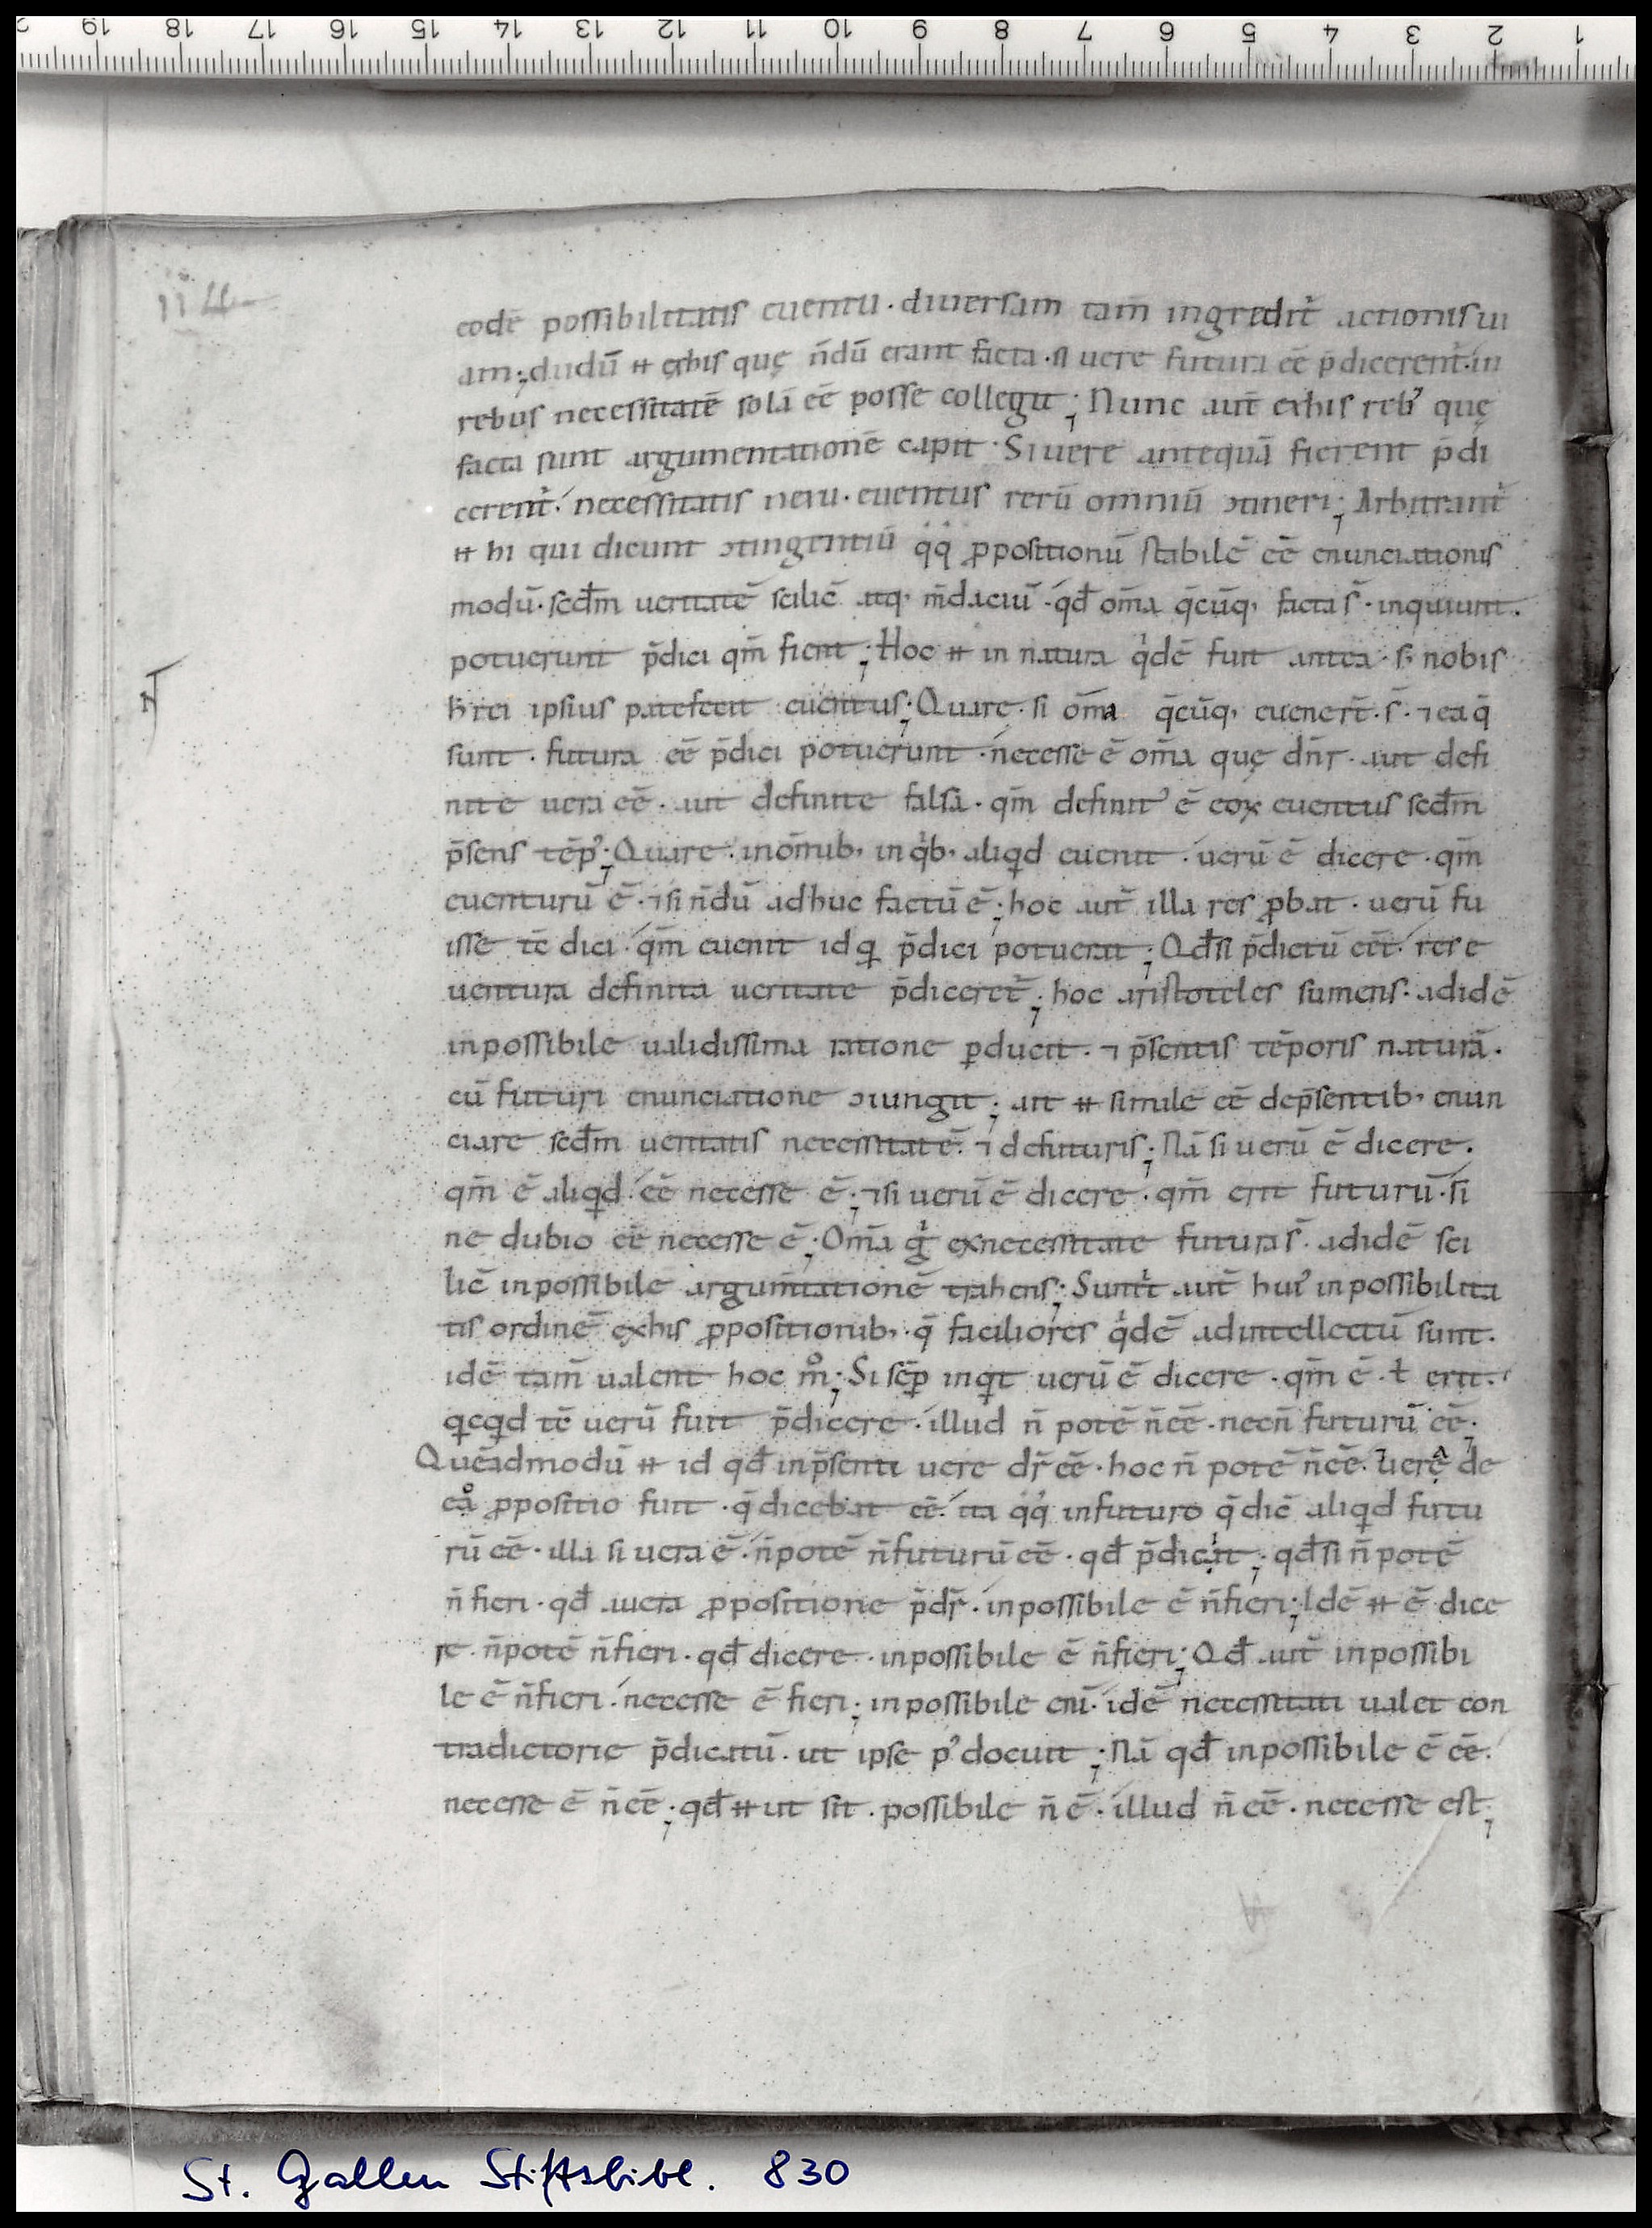 114
eodē possibilitatis euentu · diuersam tam̄ ingredit᷑ actionis ui
am; dudū ⁊ exhis quę n̄dū erant facta · si uere futura eē p̄dicerent᷑ · in
rebus necessitatē solā eē posse collegit; Nunc aut̄ exhis reb᾽ quę
facta sunt argumentationē capit · Si uere antequā fierent p̄di
cerent᷑ · necessitatis neru · euentus rerū omniū ↄtineri; Arbitrant᷑
⁊ hi qui dicunt ↄtingentiū q̊q̊ ꝓpositionū stabilē eē enunciationis
modū · scd̄m ueritatē scilic̄ atq, m̄daciū · qd̄ om̄a q̄cūq, facta s̄ · inquiunt ·
potuerunt p̄dici qm̄ fient; Hoc ⁊ in natura q̇dē fuit antea · s; nobis
ħ rei ipsius patefecit euentus; Quare · si om̄a q̄cūq, euener̄t · s̄ · ⁊ ea q̄
sunt · futura eē p̄dici potuerunt · necesse ē om̄a quę dn̄r · aut defi
nite uera eē · aut definite falsa · qm̄ definit᾽ ē eoꝝ euentus scd̄m
p̄sens tēp᾽; Quare · inom̄ib, in q̇b, aliqd euenit · uerū ē dicere · qm̄
euenturū ē · ⁊ si n̄dū adhuc factū ē; hoc aut̄ illa res ꝓbat · uerū fu
isse tē dici · qm̄ euenit id q p̄dici potuerat; Qd̄ si p̄dictū eēt · res e
uentura definita ueritate p̄diceret᷑; hoc aristoteles sumens · ad idē
inpossibile ualidissima ratione ꝑducit · ⁊ p̄sentis tēporis naturā ·
cū futuri enunciatione ↄiungit; ait ⁊ simile eē dep̄sentib, enun
ciare scd̄m ueritatis necessitatē · ⁊ defuturis; Nā si uerū ē dicere ·
qm̄ ē aliqd · eē necesse ē; ⁊ si uerū ē dicere · qm̄ erit futurū · si
ne dubio eē necesse ē; Om̄a g̊ exnecessitate futura s̄ · ad idē sci
lic̄ inpossibile argum̄tationē trahens; Sumit᷑ aut̄ hui᾽ inpossibilita
tis ordinē exhis ꝓpositionib, · q̄ faciliores q̇dē adintellectū sunt ·
idē tam̄ ualent hoc m̊; Si sēꝑ inqt uerū ē dicere · qm̄ ē · ł erit ·
qcqd tē uerū fuit p̄dicere · illud n̄ potē n̄eē · necn̄ futurū eē;
Quēadmodū ⁊ id qd̄ inp̄senti uere dr̄ eē · hoc n̄ potē n̄eē · ⁊ uera de
eå ꝓpositio fuit · q̄ dicebat eē · ita q̊q̊ infuturo q̄ dic̄ aliqd futu
rū eē · illa si uera ē · n̄ potē n̄ futurū eē · qd̄ p̄dicit; qd̄ si n̄ potē
n̄ fieri · qd̄ auera ꝓpositione p̄dr̄ · inpossibile ē n̄fieri; Idē ⁊ ē dice
re · n̄ potē n̄fieri · qd̄ dicere · inpossibile ē n̄fieri; Qd̄ aut̄ inpossibi
le ē n̄fieri · necesse ē fieri; inpossibile enī · idē necessitati ualet con
tradictorie p̄dicatū · ut ipse p᾽ docuit; Nā qd̄ inpossibile ē eē ·
necesse ē n̄ eē; qd̄ ⁊ ut sit · possibile n̄ ē · illud n̄ eē · necesse est;
St. Gallen Stiftsbibl. 830